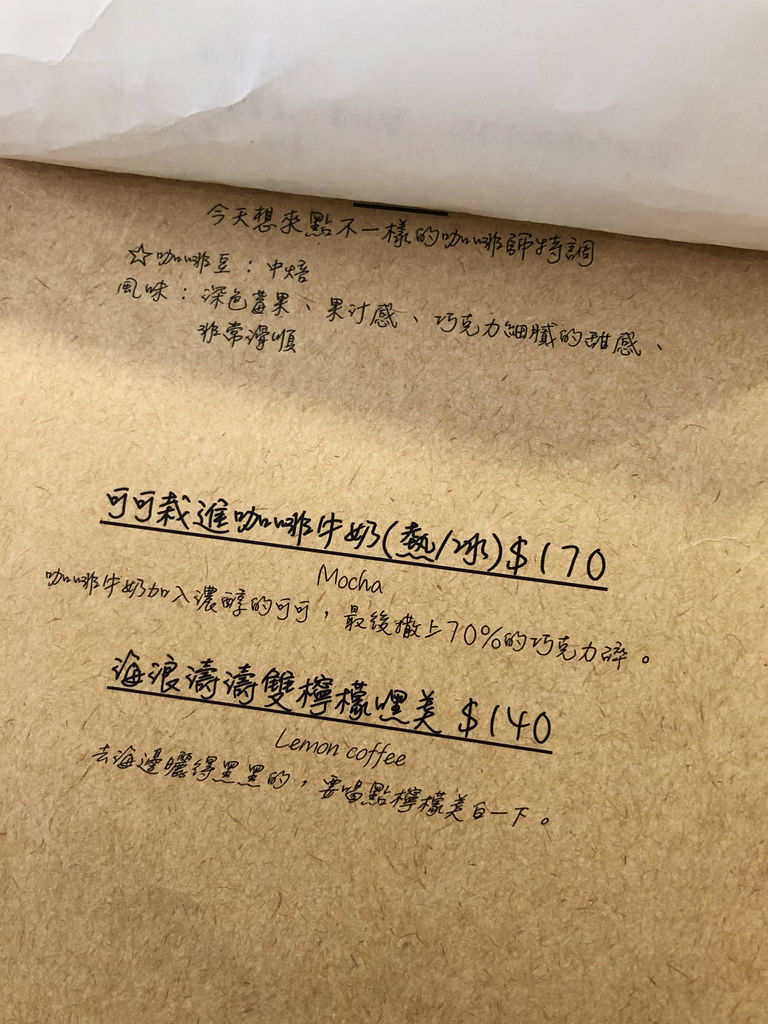 今天想來點不一樣的咖啡師特調
☆咖啡豆：中焙
風味：深色莓果、果汁感、巧克力細膩的甜感、
非常滑順
可可栽進咖啡牛奶(熱/冰)$170
Mocha
咖啡牛奶加入濃醇的可可，最後撒上70%的巧克力碎。
海浪濤濤雙檸檬嘿美 $140
Lemon coffee
去海邊曬得黑黑的，要喝點檸檬美白一下。